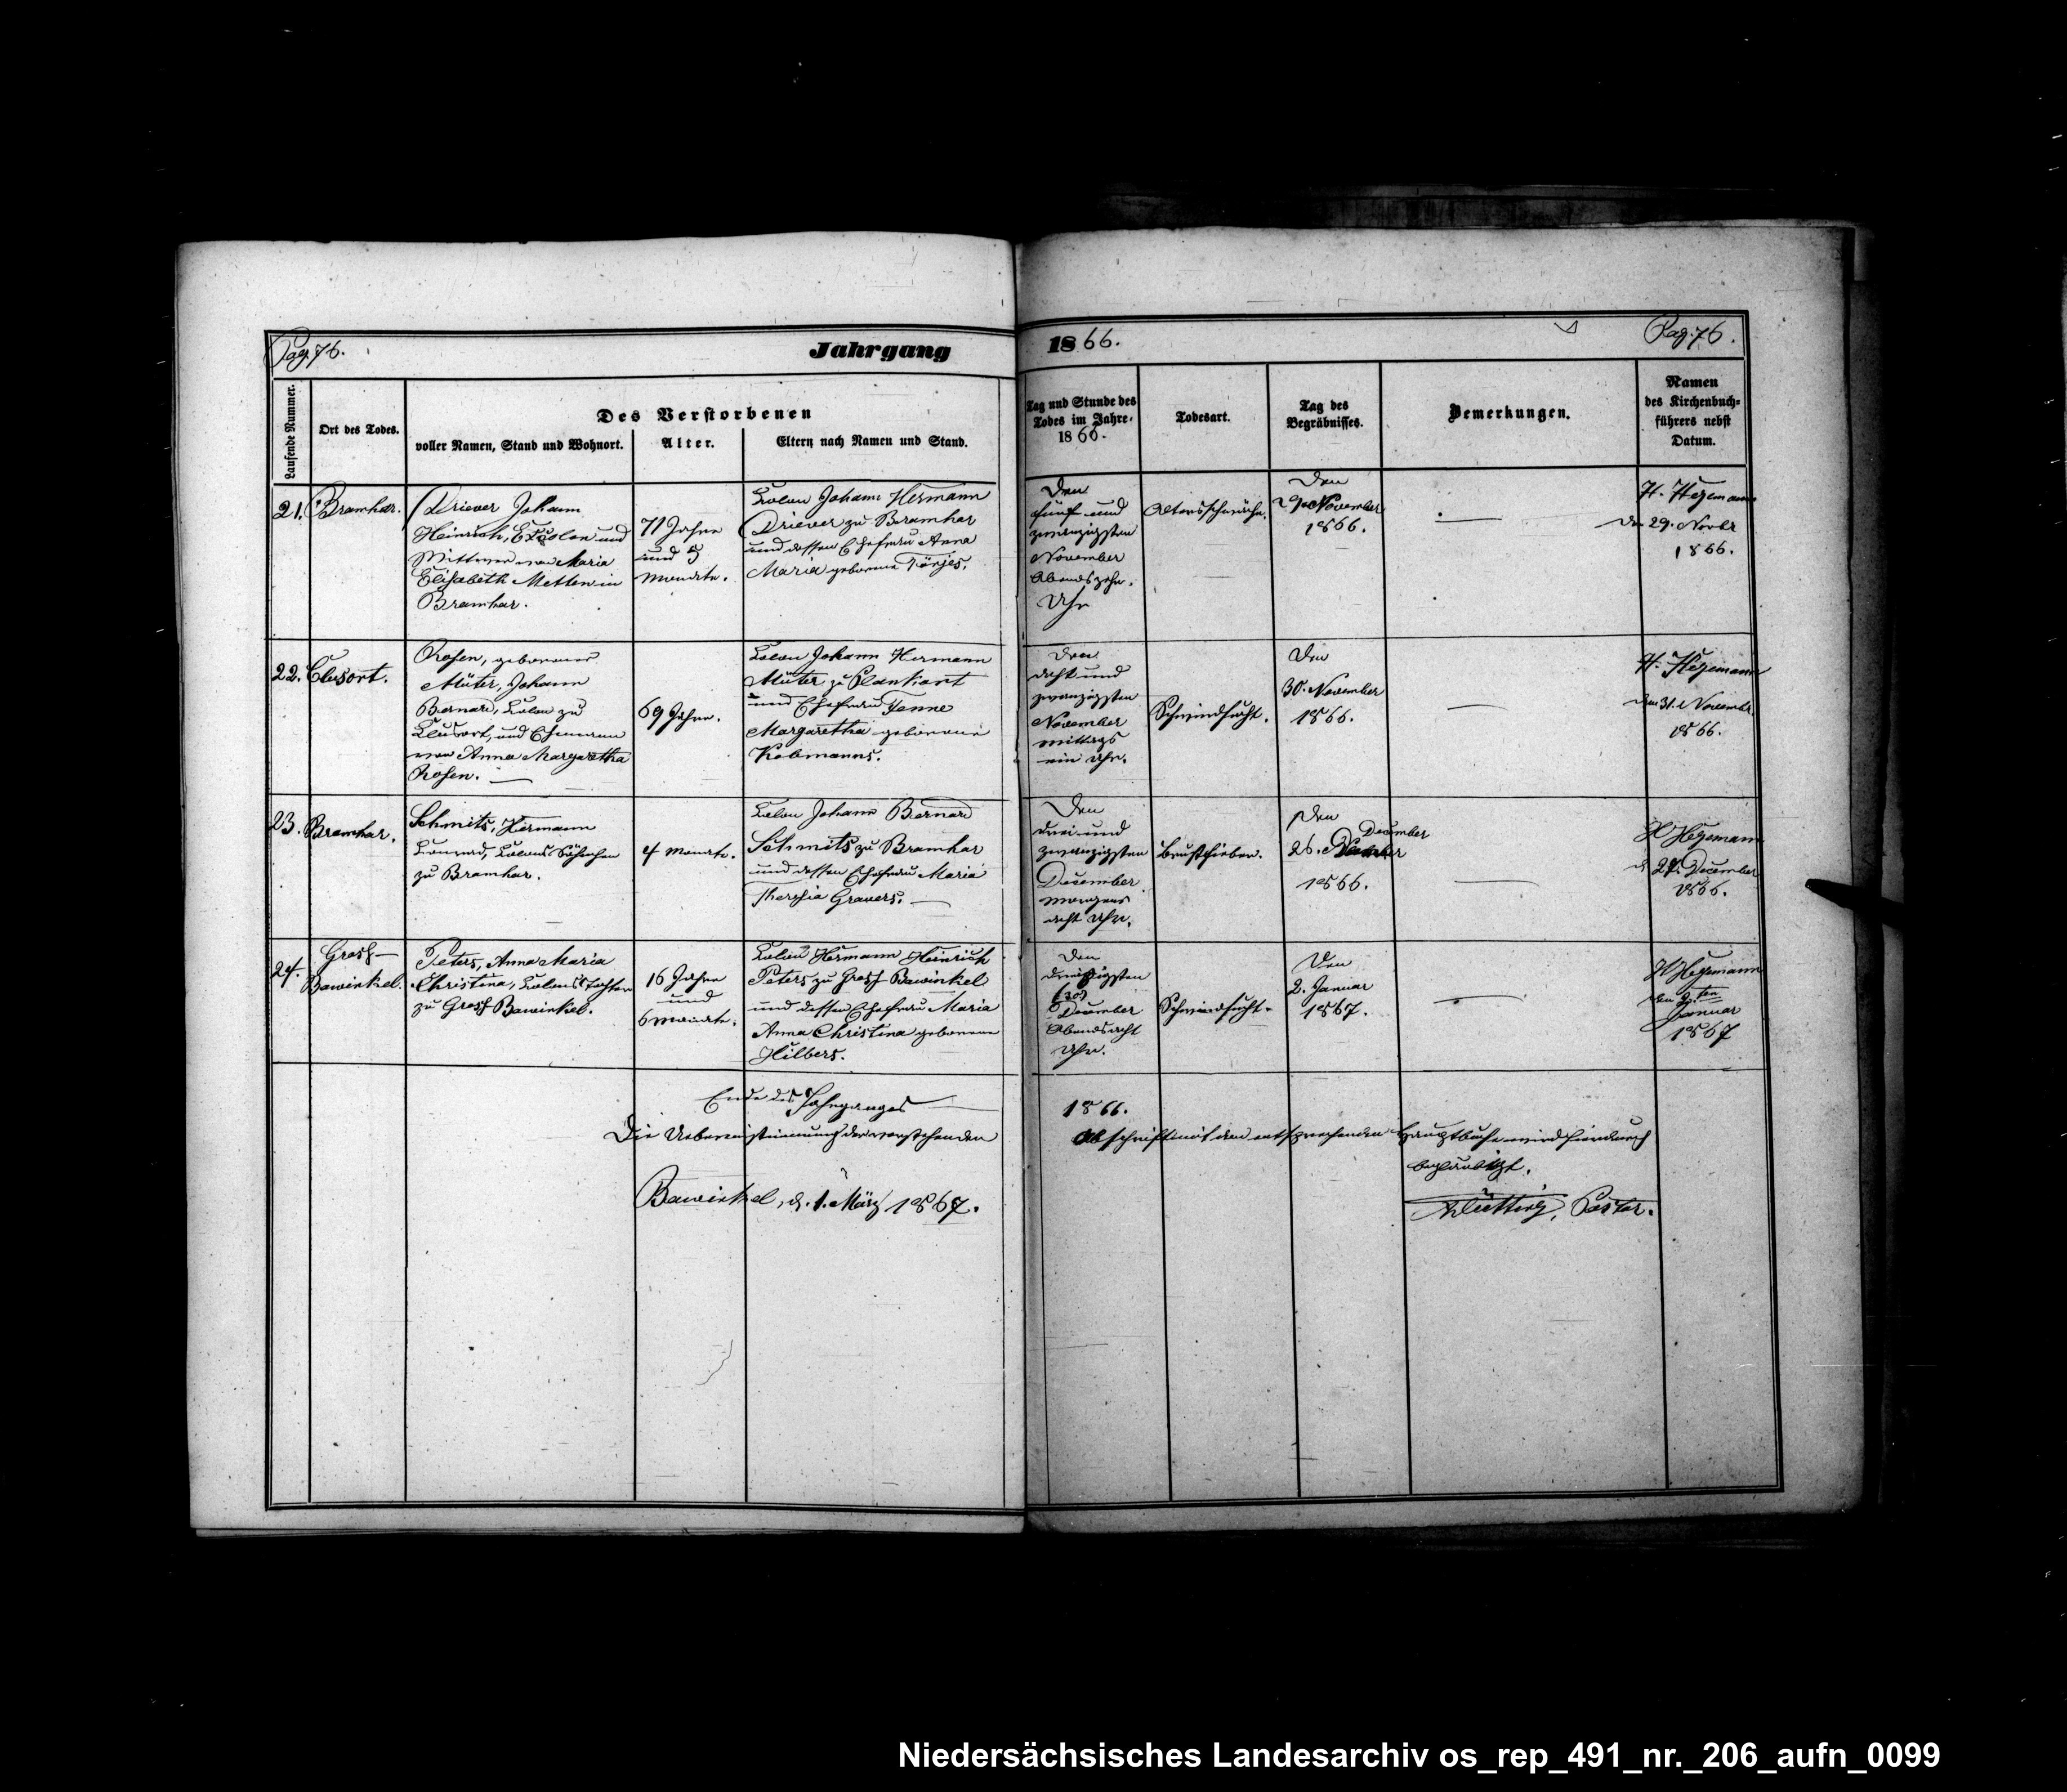 Pag. 76.
Jahrgang
1866.
Pag. 76.
Laufende Nummer.
Ort des Todes.
Des Verstorbenen
voller Namen, Stand und Wohnort.
Alter.
Eltern nach Namen und Stand.
Tag und Stunde des
Todes im Jahre
1866.
Todesart.
Tag des
Begräbnisses.
Bemerkungen.
Namen
des Kirchenbuch-
führers nebst
Datum.
21.
Bramhar.
Driever Johann
Heinrich, und
Wittwer von Maria
Elisabeth Metten in
Bramhar.
71 Jahre
und 5
Monate.
Colon Johann Hermann
Driever zu Bramhar
und dessen Ehefrau Anna
Maria geborene Törjes.
Den
fünf und
zwanzigsten
November
Abends zehn
Uhr
Altersschwäche.
Den
29. November
1866.
H. Hegemann
den 29. Novbr
1866.
22.
Clusort.
Rosen, geborener
Müter, Johann
Bernard, Colon zu
Clusort, und Ehemann
von Anna Margaretha
Rosen.
69 Jahre.
Colon Johann Hermann
Müter zu Plankort
und Ehefrau Tenne
Margaretha geborene
Kobmanns.
Den
acht und
zwanzigsten
November
mittags
ein Uhr.
Schwindsucht.
Den
30. November
1866.
H. Hegemann
den 31. Novembr.
1866.
23.
Bramhar.
Schmits, Hermann
Conrad, Colons Söhnchen
zu Bramhar.
4 Monate.
Colon Johann Bernard
Schmits zu Bramhar
und dessen Ehefrau Maria
Theresia Gravers.
Den
drei und
zwanzigsten
December
morgens
acht Uhr.
Brustfieber.
Den
December
26.
1866.
H Hegemann
d. 27. December
1866.
24.
Gross-
Bawinkel.
Peters, Anna Maria
Christina, Colons Tochter
zu Gross Bawinkel.
16 Jahre
und
6 Monate.
Colon Hermann Heinrich
Peters zu Gross Bawinkel
und dessen Ehefrau Maria
Anna Christina geborene
Hilbers.
Den
dreißigsten
(30)
December
Abends acht
Uhr.
Schwindsucht.
Den
2. Januar
1867.
H Hegemann
den 2.ten
Januar
1867
Ende des Jahrganges
1866.
Die Uebereinstimmung der vorstehenden
Abschrift mit dem entsprechenden Hauptbuche wird hierdurch
beglaubigt.
Bawinkel, d. 1. März 1867.
Pastor.
Niedersächsisches Landesarchiv os_rep_491_nr._206_aufn_0099